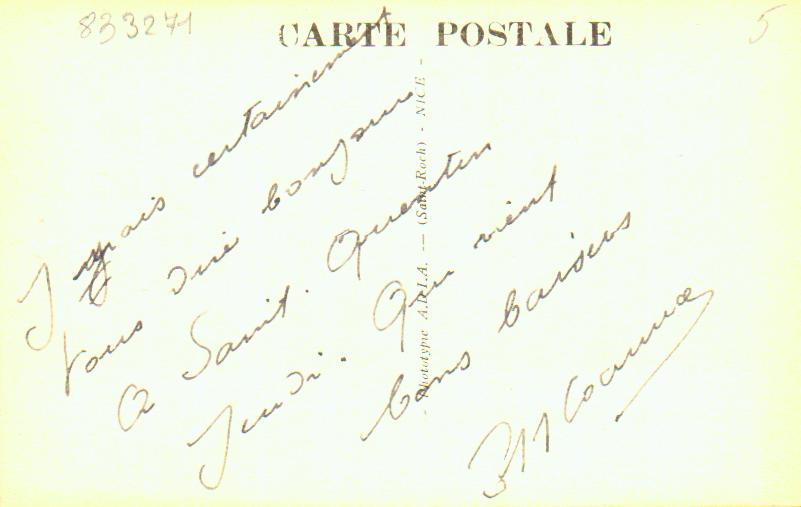 833271
5
CARTE POSTALE
J irais certainement
Vous dire bonjour
A Saint. Quentin
Jeudi. Qui vient
bons baisers
Phototypie A.D.I.A. — (Saint-Roch) - NICE -